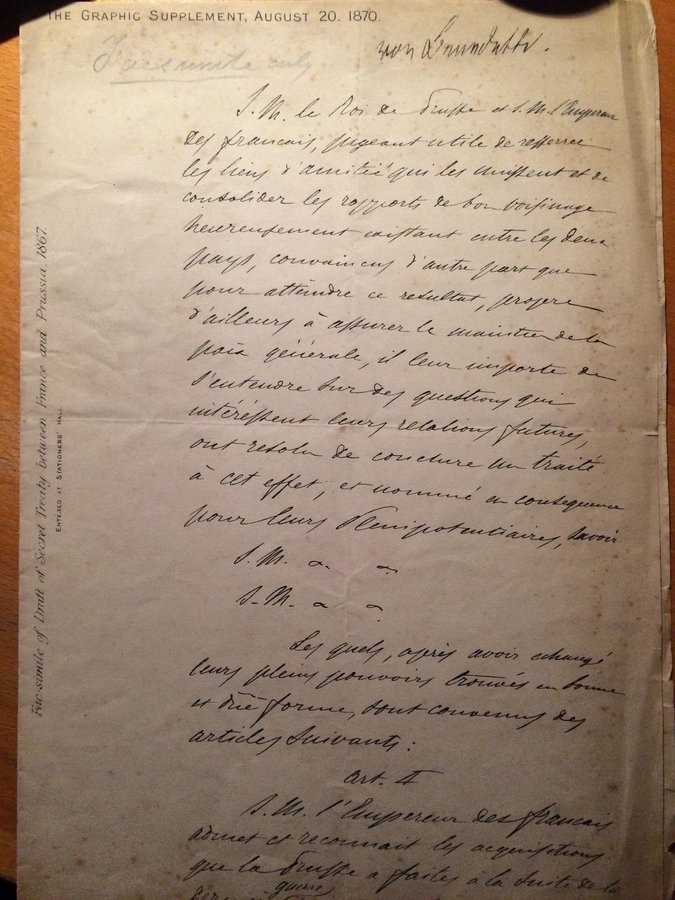 THE GRAPHIC SUPPLEMENT, AUGUST 20. 1870.
Facsimile only
von Benedetti.
S. M. le Roi de Prusse et S. M. l'Empereur
des français, jugeant utile de resserrer
les liens d'amitié qui les unissent et de
consolider les rapports de bon voisinage
heureusement existant entre les deux
pays, convaincus d'autre part que
pour atteindre ce resultat, propre
d'ailleurs à assurer le maintien de la
paix générale, il leur importe de
s'entendre sur des questions qui
intéressent leurs relations futures,
ont resolu de conclure un traité
à cet effet, et nommé en consequence
pour leurs Plenipotentiaires, savoir
S. M.
S. M.
Les quels, après avoir echangé
leurs pleins pouvoirs trouvés en bonne
et düe forme, sont convenus des
articles suivants:
art. I
S. M. l'Empereur des francais
admet et reconnait les acquisitions
que la Prusse a faites à la suite de la
guerre
Fac-simile of Draft of Secret Treaty between France and Prussia, 1867.
ENTERED AT STATIONERS' HALL